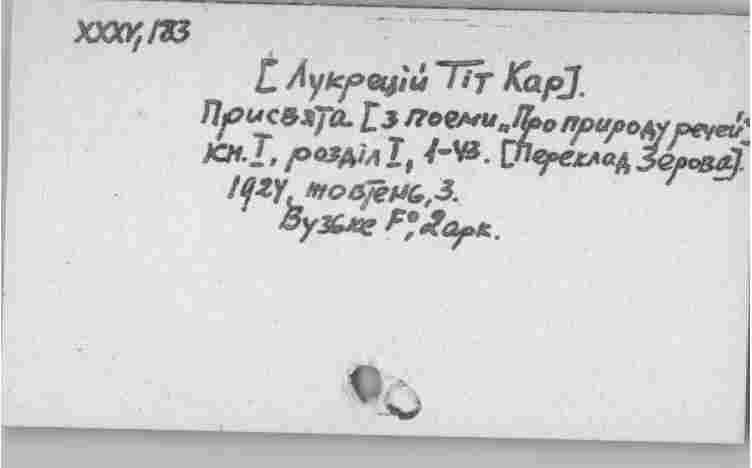 XXXV, 183
[Лукрецій Тіт Кар].
Присвята. [з поеми „Про природу речей"]
кн. I, розділ I, 1-43. [Переклад Зерова].
1924, жовтень, 3.
Вузьке F°, 2 арк.